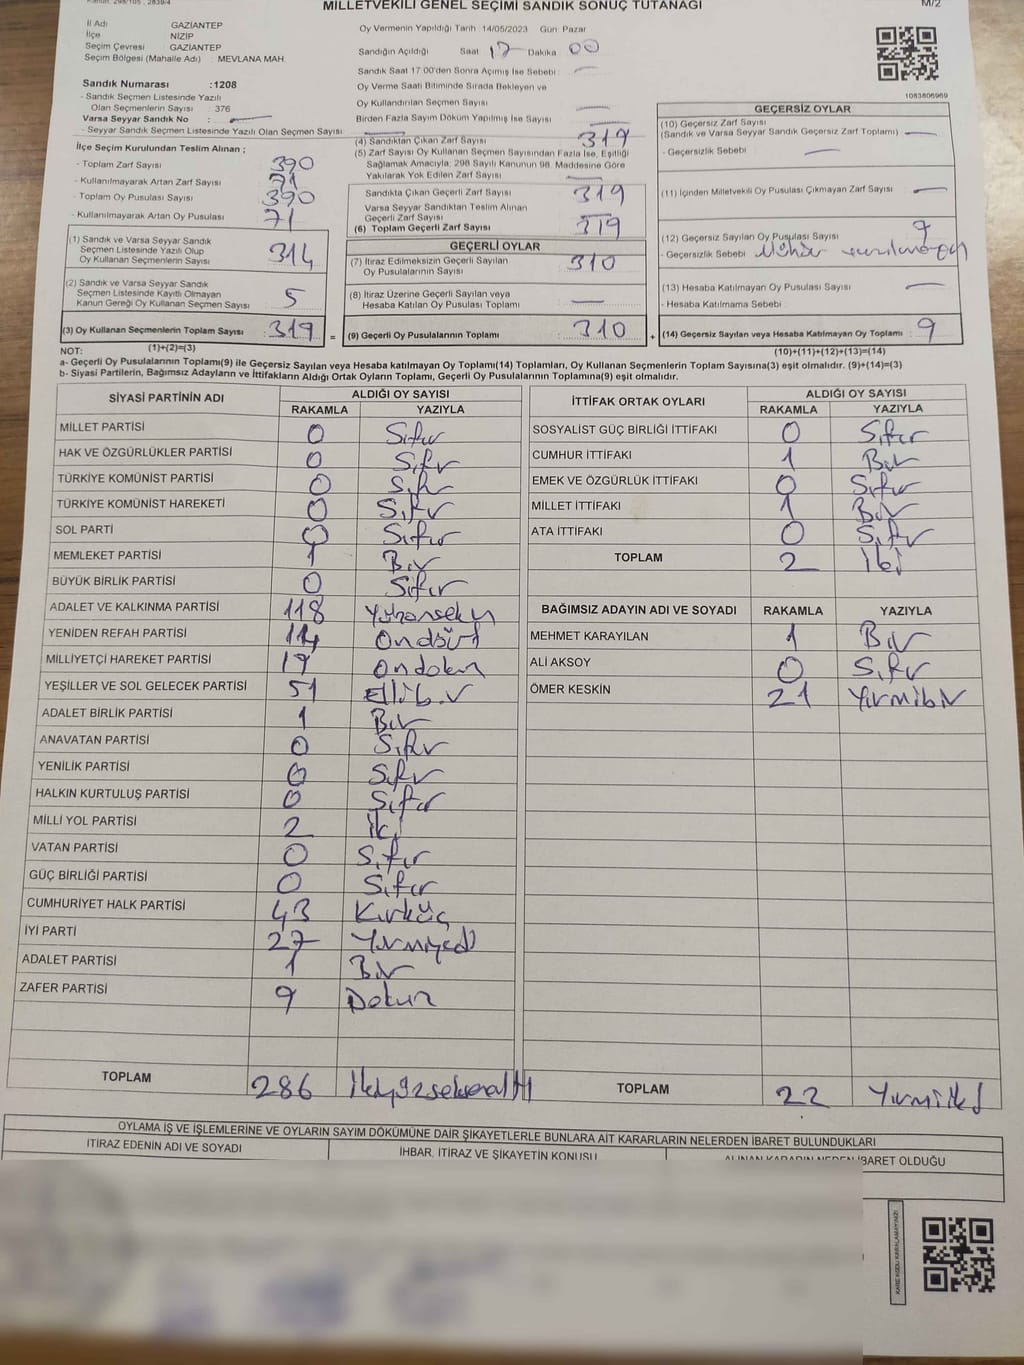 MİLLETVEKİLİ GENEL SEÇİMİ SANDIK SONUÇ TUTANAĞI
M/2
İl Adı GAZİANTEP
İlçe NİZİP
Seçim Çevresi GAZİANTEP
Seçim Bölgesi (Mahalle Adı) : MEVLANA MAH.
Sandık Numarası :1208
- Sandık Seçmen Listesinde Yazılı
Olan Seçmenlerin Sayısı : 376
Varsa Seyyar Sandık No : —
- Seyyar Sandık Seçmen Listesinde Yazılı Olan Seçmen Sayısı : —
İlçe Seçim Kurulundan Teslim Alınan ;
- Toplam Zarf Sayısı : 390
- Kullanılmayarak Artan Zarf Sayısı : 71
- Toplam Oy Pusulası Sayısı : 390
- Kullanılmayarak Artan Oy Pusulası : 71
(1) Sandık ve Varsa Seyyar Sandık
Seçmen Listesinde Yazılı Olup
Oy Kullanan Seçmenlerin Sayısı : 314
(2) Sandık ve Varsa Seyyar Sandık
Seçmen Listesinde Kayıtlı Olmayan
Kanun Gereği Oy Kullanan Seçmen Sayısı : 5
(3) Oy Kullanan Seçmenlerin Toplam Sayısı : 319
(1)+(2)=(3)
Oy Vermenin Yapıldığı Tarih 14/05/2023 Gün Pazar
Sandığın Açıldığı Saat 17 Dakika 00
Sandık Saat 17:00'den Sonra Açılmış İse Sebebi : —
Oy Verme Saati Bitiminde Sırada Bekleyen ve
Oy Kullandırılan Seçmen Sayısı : —
Birden Fazla Sayım Döküm Yapılmış İse Sayısı : —
(4) Sandıktan Çıkan Zarf Sayısı : 319
(5) Zarf Sayısı Oy Kullanan Seçmen Sayısından Fazla İse, Eşitliği
Sağlamak Amacıyla, 298 Sayılı Kanunun 98. Maddesine Göre
Yakılarak Yok Edilen Zarf Sayısı : —
Sandıkta Çıkan Geçerli Zarf Sayısı : 319
Varsa Seyyar Sandıktan Teslim Alınan
Geçerli Zarf Sayısı : —
(6) Toplam Geçerli Zarf Sayısı : 319
GEÇERLİ OYLAR
(7) İtiraz Edilmeksizin Geçerli Sayılan
Oy Pusulalarının Sayısı : 310
(8) İtiraz Üzerine Geçerli Sayılan veya
Hesaba Katılan Oy Pusulası Toplamı : —
= (9) Geçerli Oy Pusulalarının Toplamı : 310 +
1083806969
GEÇERSİZ OYLAR
(10) Geçersiz Zarf Sayısı
(Sandık ve Varsa Seyyar Sandık Geçersiz Zarf Toplamı) : —
- Geçersizlik Sebebi : —
(11) İçinden Milletvekili Oy Pusulası Çıkmayan Zarf Sayısı : —
(12) Geçersiz Sayılan Oy Pusulası Sayısı : 9
- Geçersizlik Sebebi : Mühür
(13) Hesaba Katılmayan Oy Pusulası Sayısı : —
- Hesaba Katılmama Sebebi :
(14) Geçersiz Sayılan veya Hesaba Katılmayan Oy Toplamı : 9
(10)+(11)+(12)+(13)=(14)
NOT:
a- Geçerli Oy Pusulalarının Toplamı(9) ile Geçersiz Sayılan veya Hesaba katılmayan Oy Toplamı(14) Toplamları, Oy Kullanan Seçmenlerin Toplam Sayısına(3) eşit olmalıdır. (9)+(14)=(3)
b- Siyasi Partilerin, Bağımsız Adayların ve İttifakların Aldığı Ortak Oyların Toplamı, Geçerli Oy Pusulalarının Toplamına(9) eşit olmalıdır.
SİYASİ PARTİNİN ADI ALDIĞI OY SAYISI
RAKAMLA YAZIYLA
MİLLET PARTİSİ 0 Sıfır
HAK VE ÖZGÜRLÜKLER PARTİSİ 0 Sıfır
TÜRKİYE KOMÜNİST PARTİSİ 0 Sıfır
TÜRKİYE KOMÜNİST HAREKETİ 0 Sıfır
SOL PARTİ 0 Sıfır
MEMLEKET PARTİSİ 1 Bir
BÜYÜK BİRLİK PARTİSİ 0 Sıfır
ADALET VE KALKINMA PARTİSİ 118 Yüzonsekiz
YENİDEN REFAH PARTİSİ 14 Ondört
MİLLİYETÇİ HAREKET PARTİSİ 19 Ondokuz
YEŞİLLER VE SOL GELECEK PARTİSİ 51 Ellibir
ADALET BİRLİK PARTİSİ 1 Bir
ANAVATAN PARTİSİ 0 Sıfır
YENİLİK PARTİSİ 0 Sıfır
HALKIN KURTULUŞ PARTİSİ 0 Sıfır
MİLLİ YOL PARTİSİ 2 İki
VATAN PARTİSİ 0 Sıfır
GÜÇ BİRLİĞİ PARTİSİ 0 Sıfır
CUMHURİYET HALK PARTİSİ 43 Kırküç
İYİ PARTİ 27 Yirmiyedi
ADALET PARTİSİ 1 Bir
ZAFER PARTİSİ 9 Dokuz
TOPLAM 286 İkiyüzseksenaltı
İTTİFAK ORTAK OYLARI ALDIĞI OY SAYISI
RAKAMLA YAZIYLA
SOSYALİST GÜÇ BİRLİĞİ İTTİFAKI 0 Sıfır
CUMHUR İTTİFAKI 1 Bir
EMEK VE ÖZGÜRLÜK İTTİFAKI 0 Sıfır
MİLLET İTTİFAKI 1 Bir
ATA İTTİFAKI 0 Sıfır
TOPLAM 2 İki
BAĞIMSIZ ADAYIN ADI VE SOYADI RAKAMLA YAZIYLA
MEHMET KARAYILAN 1 Bir
ALİ AKSOY 0 Sıfır
ÖMER KESKİN 21 Yirmibir
TOPLAM 22 Yirmiiki
OYLAMA İŞ VE İŞLEMLERİNE VE OYLARIN SAYIM DÖKÜMÜNE DAİR ŞİKAYETLERLE BUNLARA AİT KARARLARIN NELERDEN İBARET BULUNDUKLARI
İTİRAZ EDENİN ADI VE SOYADI
İHBAR, İTİRAZ VE ŞİKAYETİN KONUSU
ALINAN KARARIN NEDEN İBARET OLDUĞU
KARE KODU KARALAMAYINIZ!